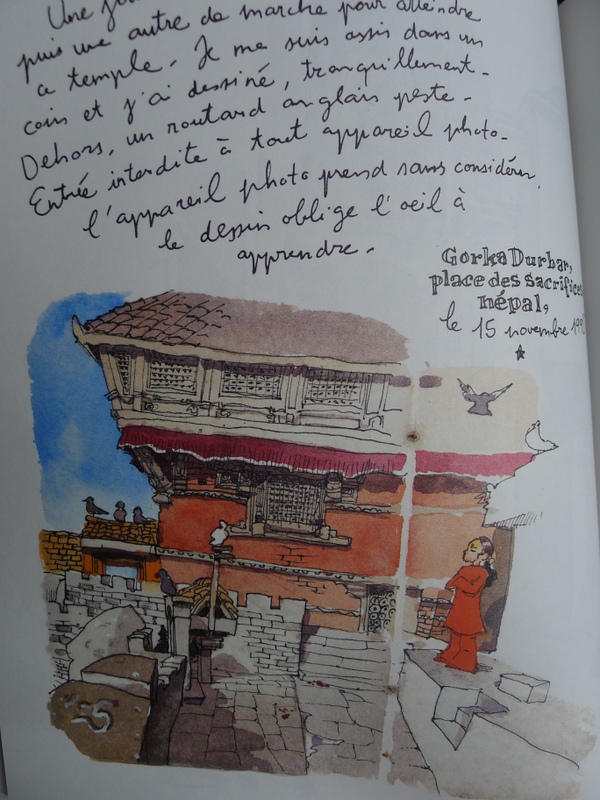 Une
puis une autre de marche pour atteindre
ce temple. Je me suis assis dans un
coin et j'ai dessiné, tranquillement.
Dehors, un routard anglais peste.
Entrée interdite à tout appareil photo.
l'appareil photo prend sans considérer,
le dessin oblige l'oeil à
apprendre.
Gorka Durbar,
place des sacrifices
népal,
le 15 novembre